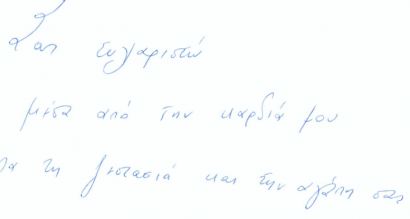 Σας ευχαριστώ
μέσα από την καρδιά μου
για τη ζεστασιά και την αγάπη σας